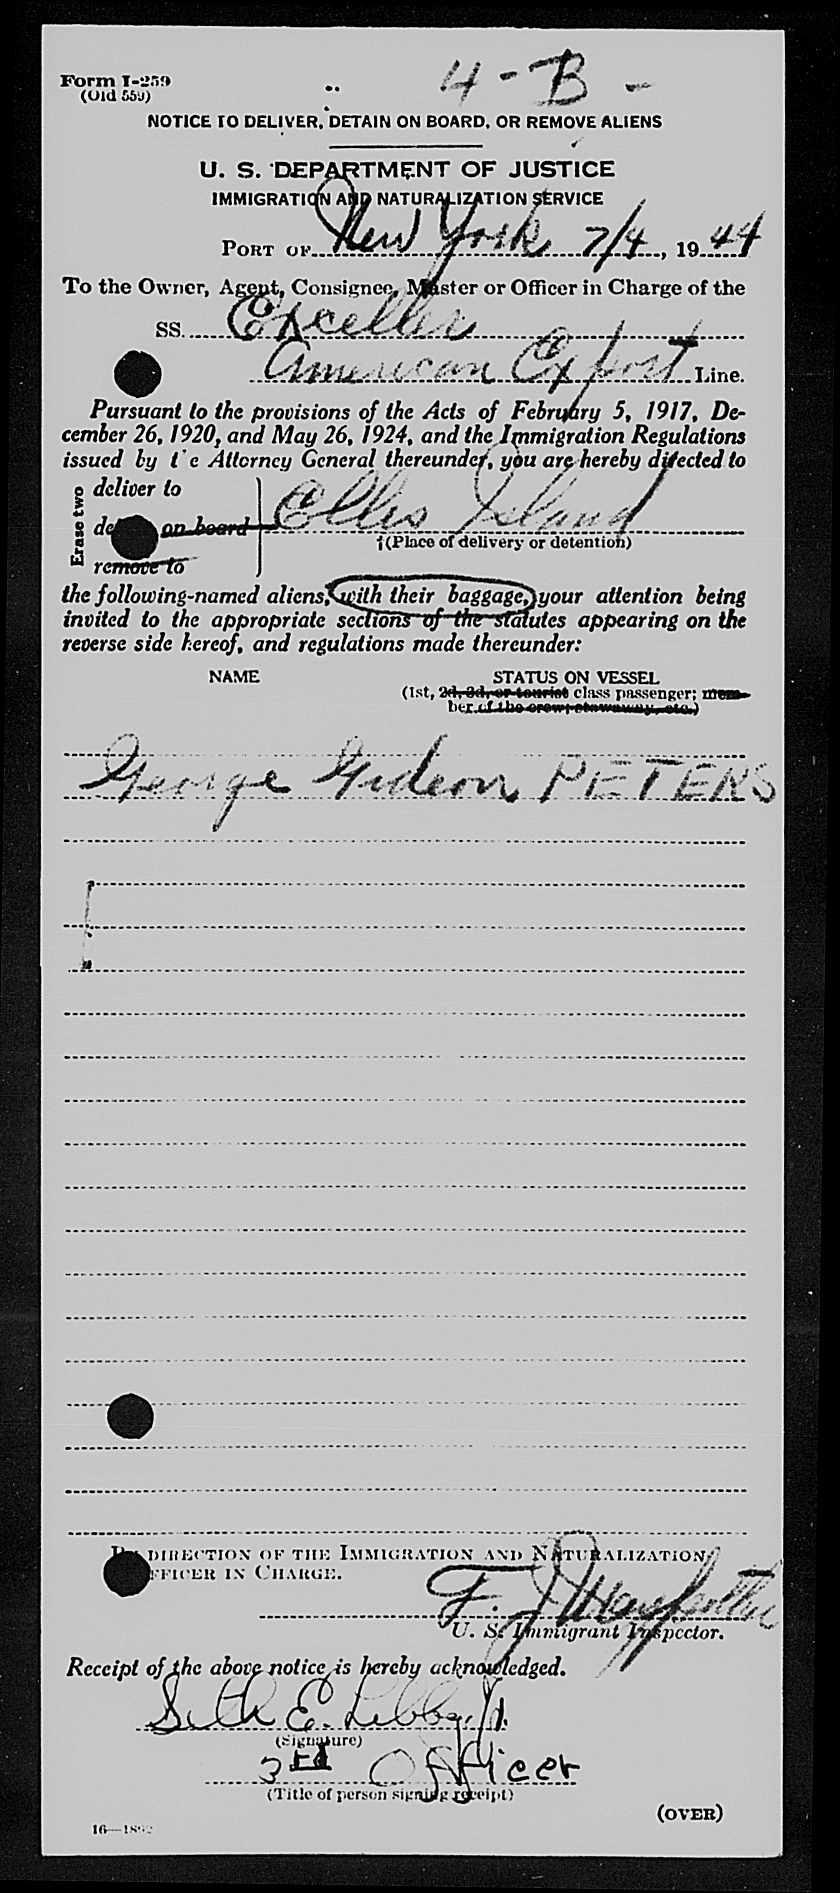 4-B-
Form I-259
(Old 559)
NOTICE TO DELIVER, DETAIN ON BOARD, OR REMOVE ALIENS
U. S. DEPARTMENT OF JUSTICE
IMMIGRATION AND NATURALIZATION SERVICE
PORT OF New York 7/4, 1944
To the Owner, Agent, Consignee, Master or Officer in Charge of the
SS. Exceller
American Export Line.
Pursuant to the provisions of the Acts of February 5, 1917, De-
cember 26, 1920, and May 26, 1924, and the Immigration Regulations
issued by t e Attorney General thereunder, you are hereby directed to
Erase two
deliver to
de on board Ellis Island
†(Place of delivery or detention)
remove to
the following-named aliens, with their baggage, your attention being
invited to the appropriate sections of the statutes appearing on the
reverse side hereof, and regulations made thereunder:
NAME STATUS ON VESSEL
(1st, 2d, 3d, or tourist class passenger; mem-
ber of the crew; stowaway, etc.)
George Gideon PETERS
DIRECTION OF THE IMMIGRATION AND NATURALIZATION
FFICER IN CHARGE.
F. J.
U. S. Immigrant Inspector.
Receipt of the above notice is hereby acknowledged.
Seth E. Libby, Jr.
(Signature)
3rd Officer
(Title of person signing receipt)
(OVER)